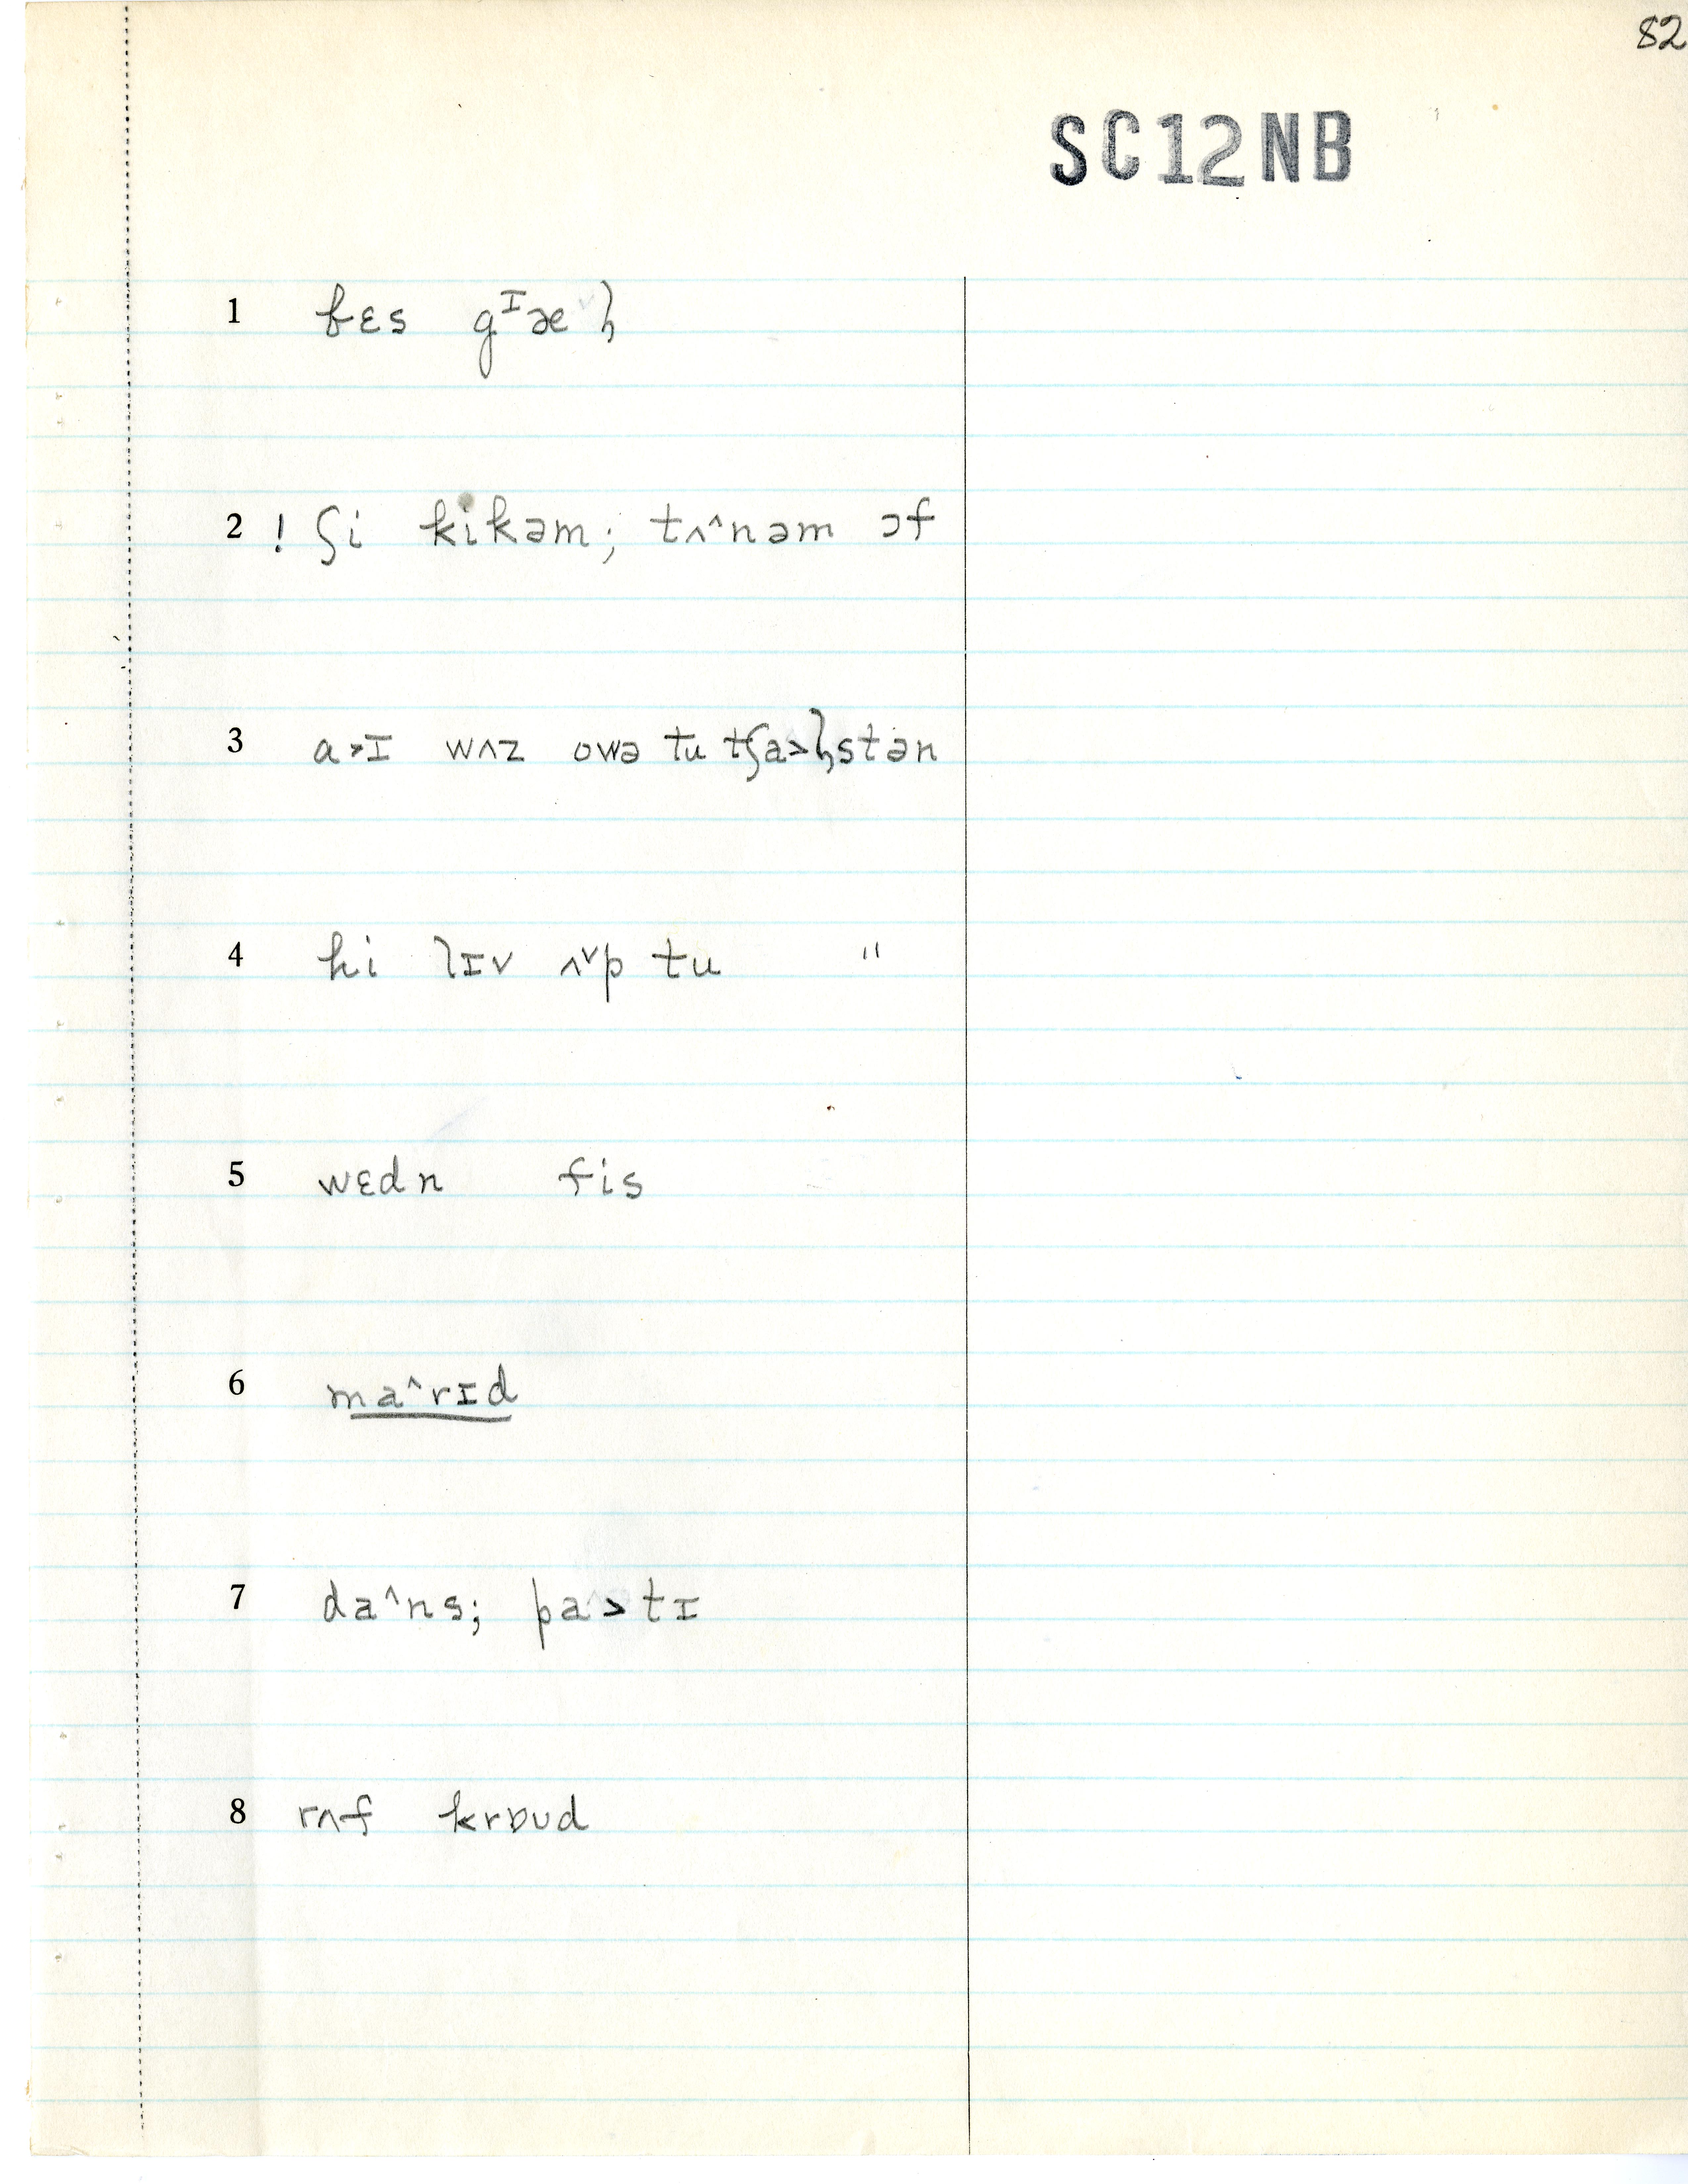 82
SC12NB
1 bɛs gᴵæɫ
2 ! ʃi kikəm; tʌ^nəm ɔf
3 a>ɪ wʌz owə tu tʃa>ɫstən
4 hi lɪv ʌᵛp tu "
5 wɛdn fis
6 ma^rɪd
7 da^ns; pa>tɪ
8 rʌf krɒud